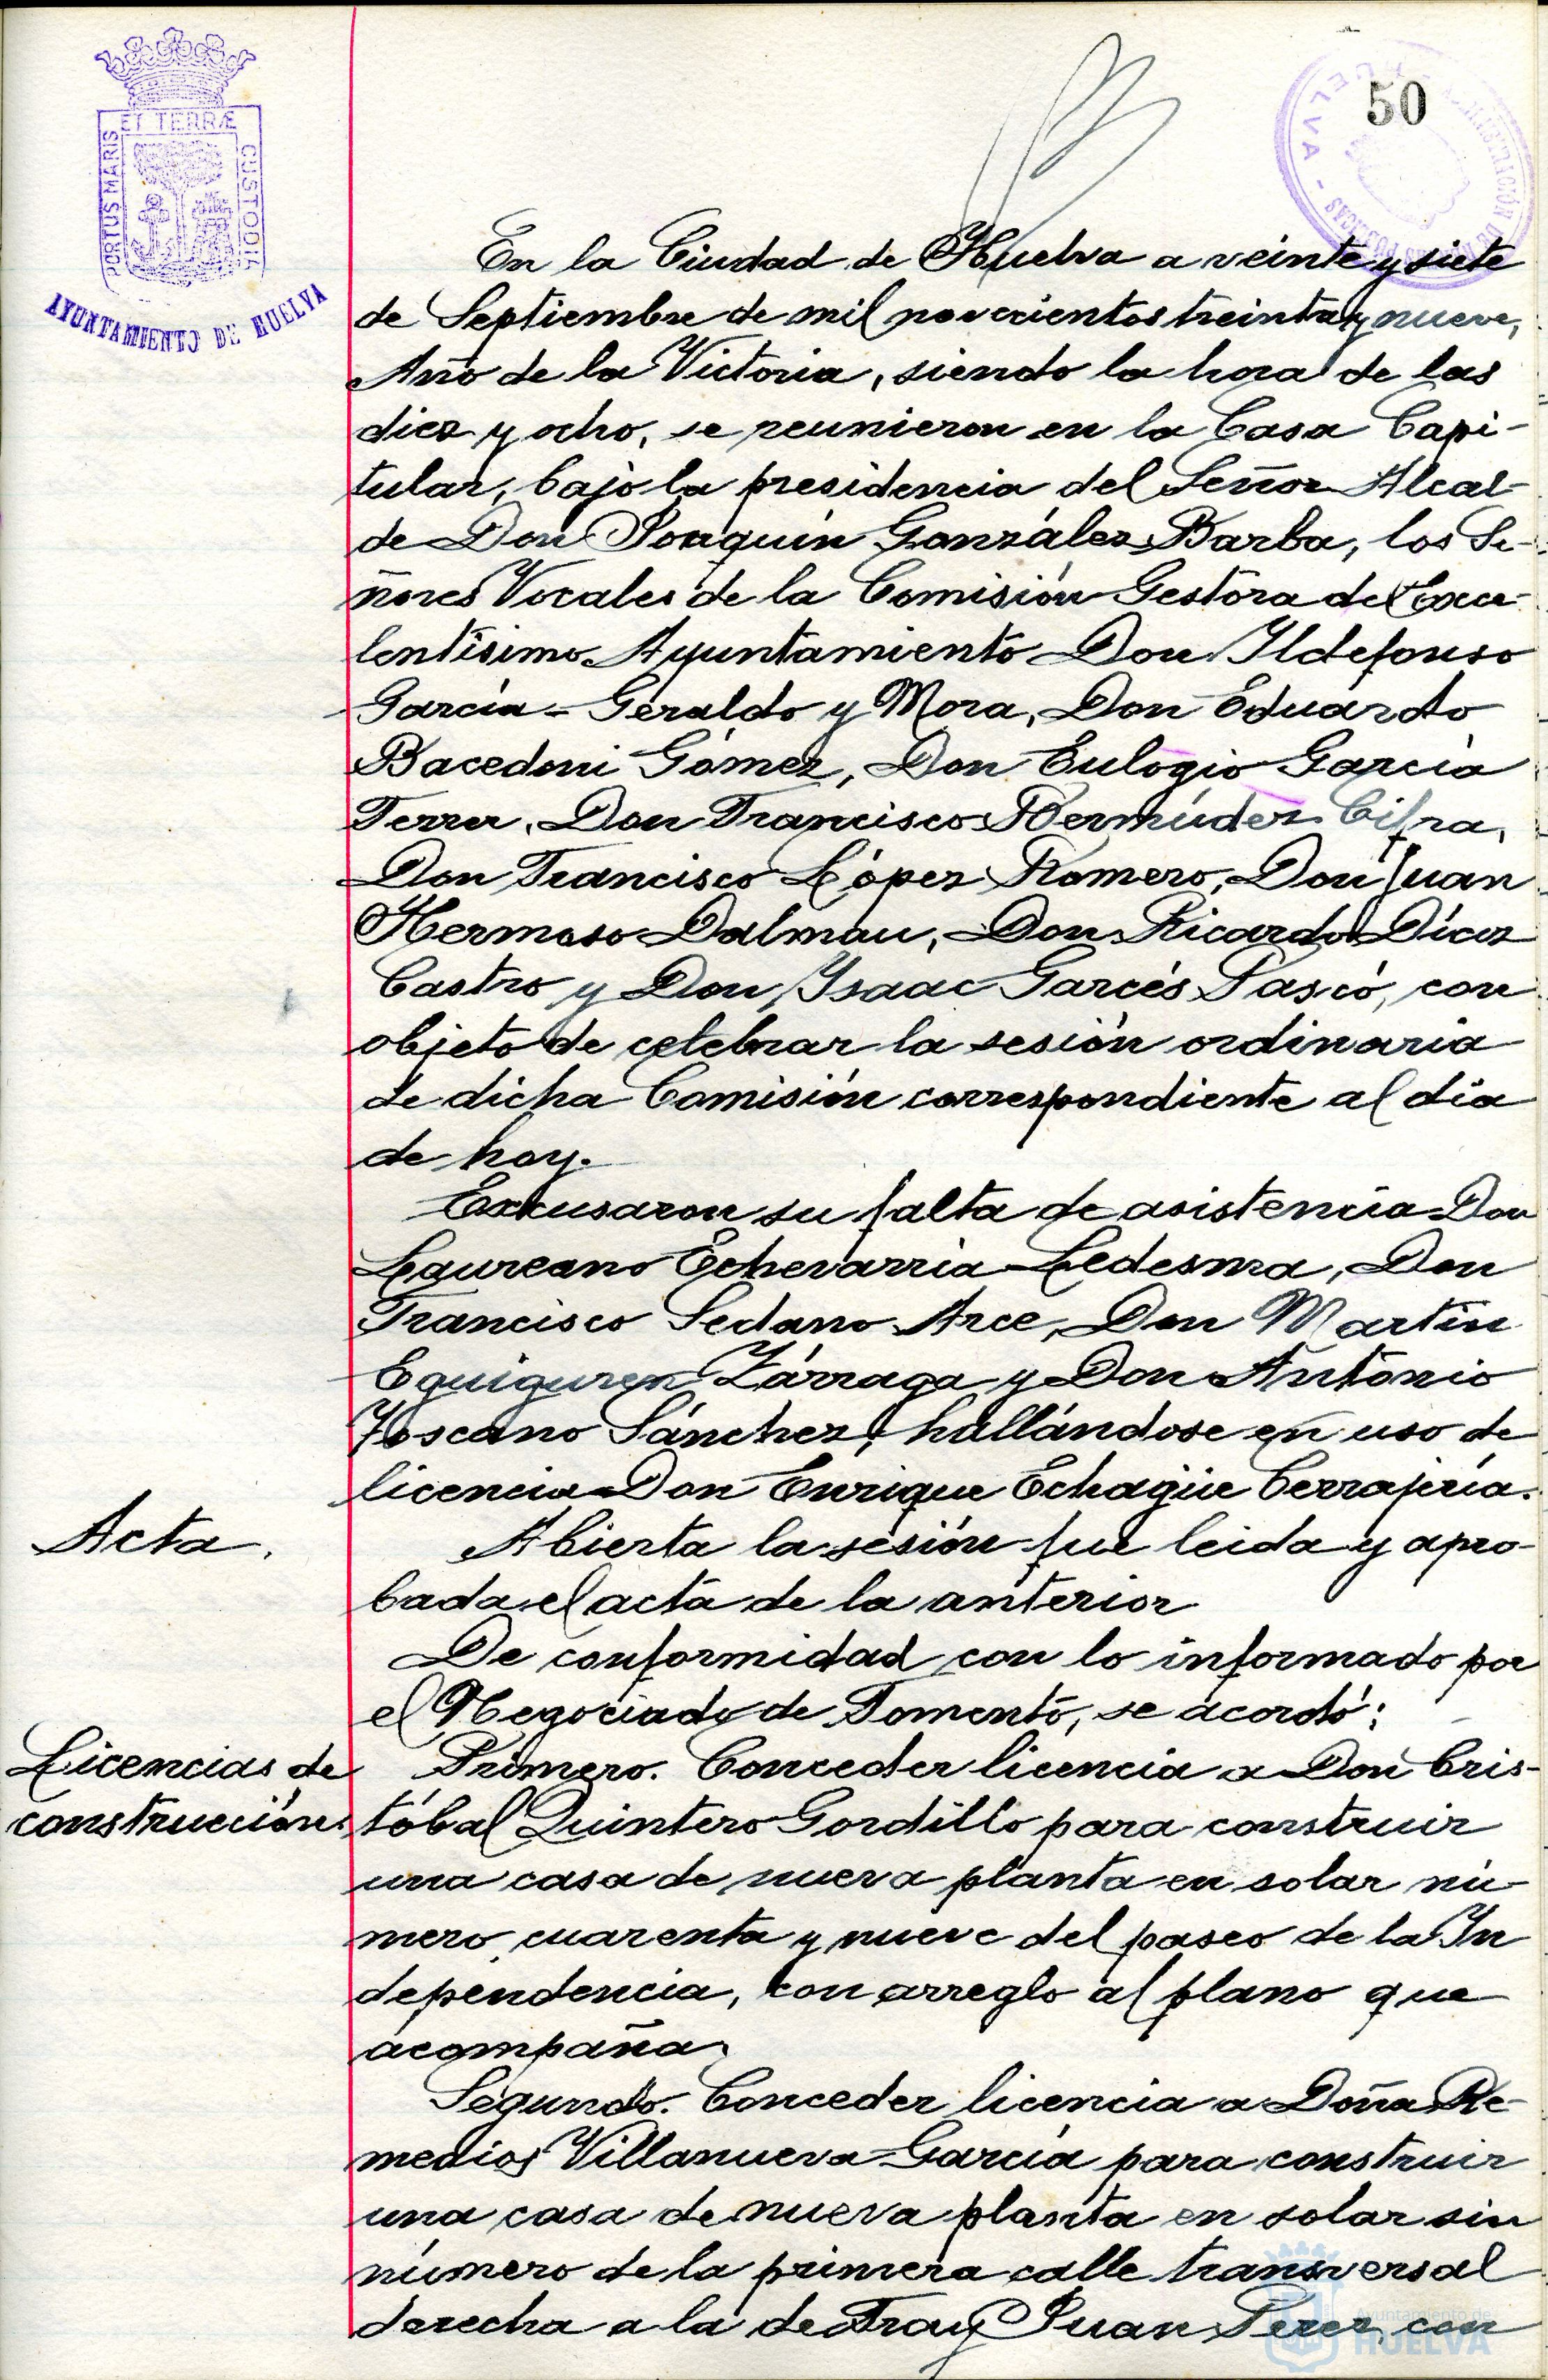 50
PORTUS MARIS ET TERRÆ CUSTODIA
AYUNTAMIENTO DE HUELVA
En la Ciudad de Huelva a veinte y siete
de Septiembre de mil novecientos treinta y nueve,
Año de la Victoria, siendo la hora de las
diez y ocho, se reunieron en la Casa Capi-
tular, bajo la presidencia del Señor Alcal-
de Don Joaquín González Barba, los Se-
ñores Vocales de la Comisión Gestora del Exce-
lentísimo Ayuntamiento Don Ildefonso
García-Geraldo y Mora, Don Eduardo
Bacedoni Gómez, Don Eulogio García
Ferrer, Don Francisco Bermúdez Cifra,
Don Francisco López Romero, Don Juan
Hermoso Dalmau, Don Ricardo Díez
Castro y Don Isaac Garcés Pascó, con
objeto de celebrar la sesión ordinaria
de dicha Comisión correspondiente al día
de hoy.
Excusaron su falta de asistencia Don
Laureano Echevarría Ledesma, Don
Francisco Sedano Arce, Don Martín
Eguiguren Zárraga y Don Antonio
Toscano Sánchez, hallándose en uso de
licencia Don Enrique Echagüe Cerrajería.
Acta.
Abierta la sesión fue leida y apro-
bada el acta de la anterior
De conformidad con lo informado por
el Negociado de Fomento, se acordó:
Licencias de
construcción.
Primero. Conceder licencia a Don Cris-
tóbal Quintero Gordillo para construir
una casa de nueva planta en solar nú-
mero cuarenta y nueve del paseo de la In
dependencia, con arreglo al plano que
acompaña.
Segundo. Conceder licencia a Doña Re-
medios Villanueva García para construir
una casa de nueva planta en solar sin
número de la primera calle transversal
derecha a la de Fray Juan Perez, con
Ayuntamiento de
HUELVA